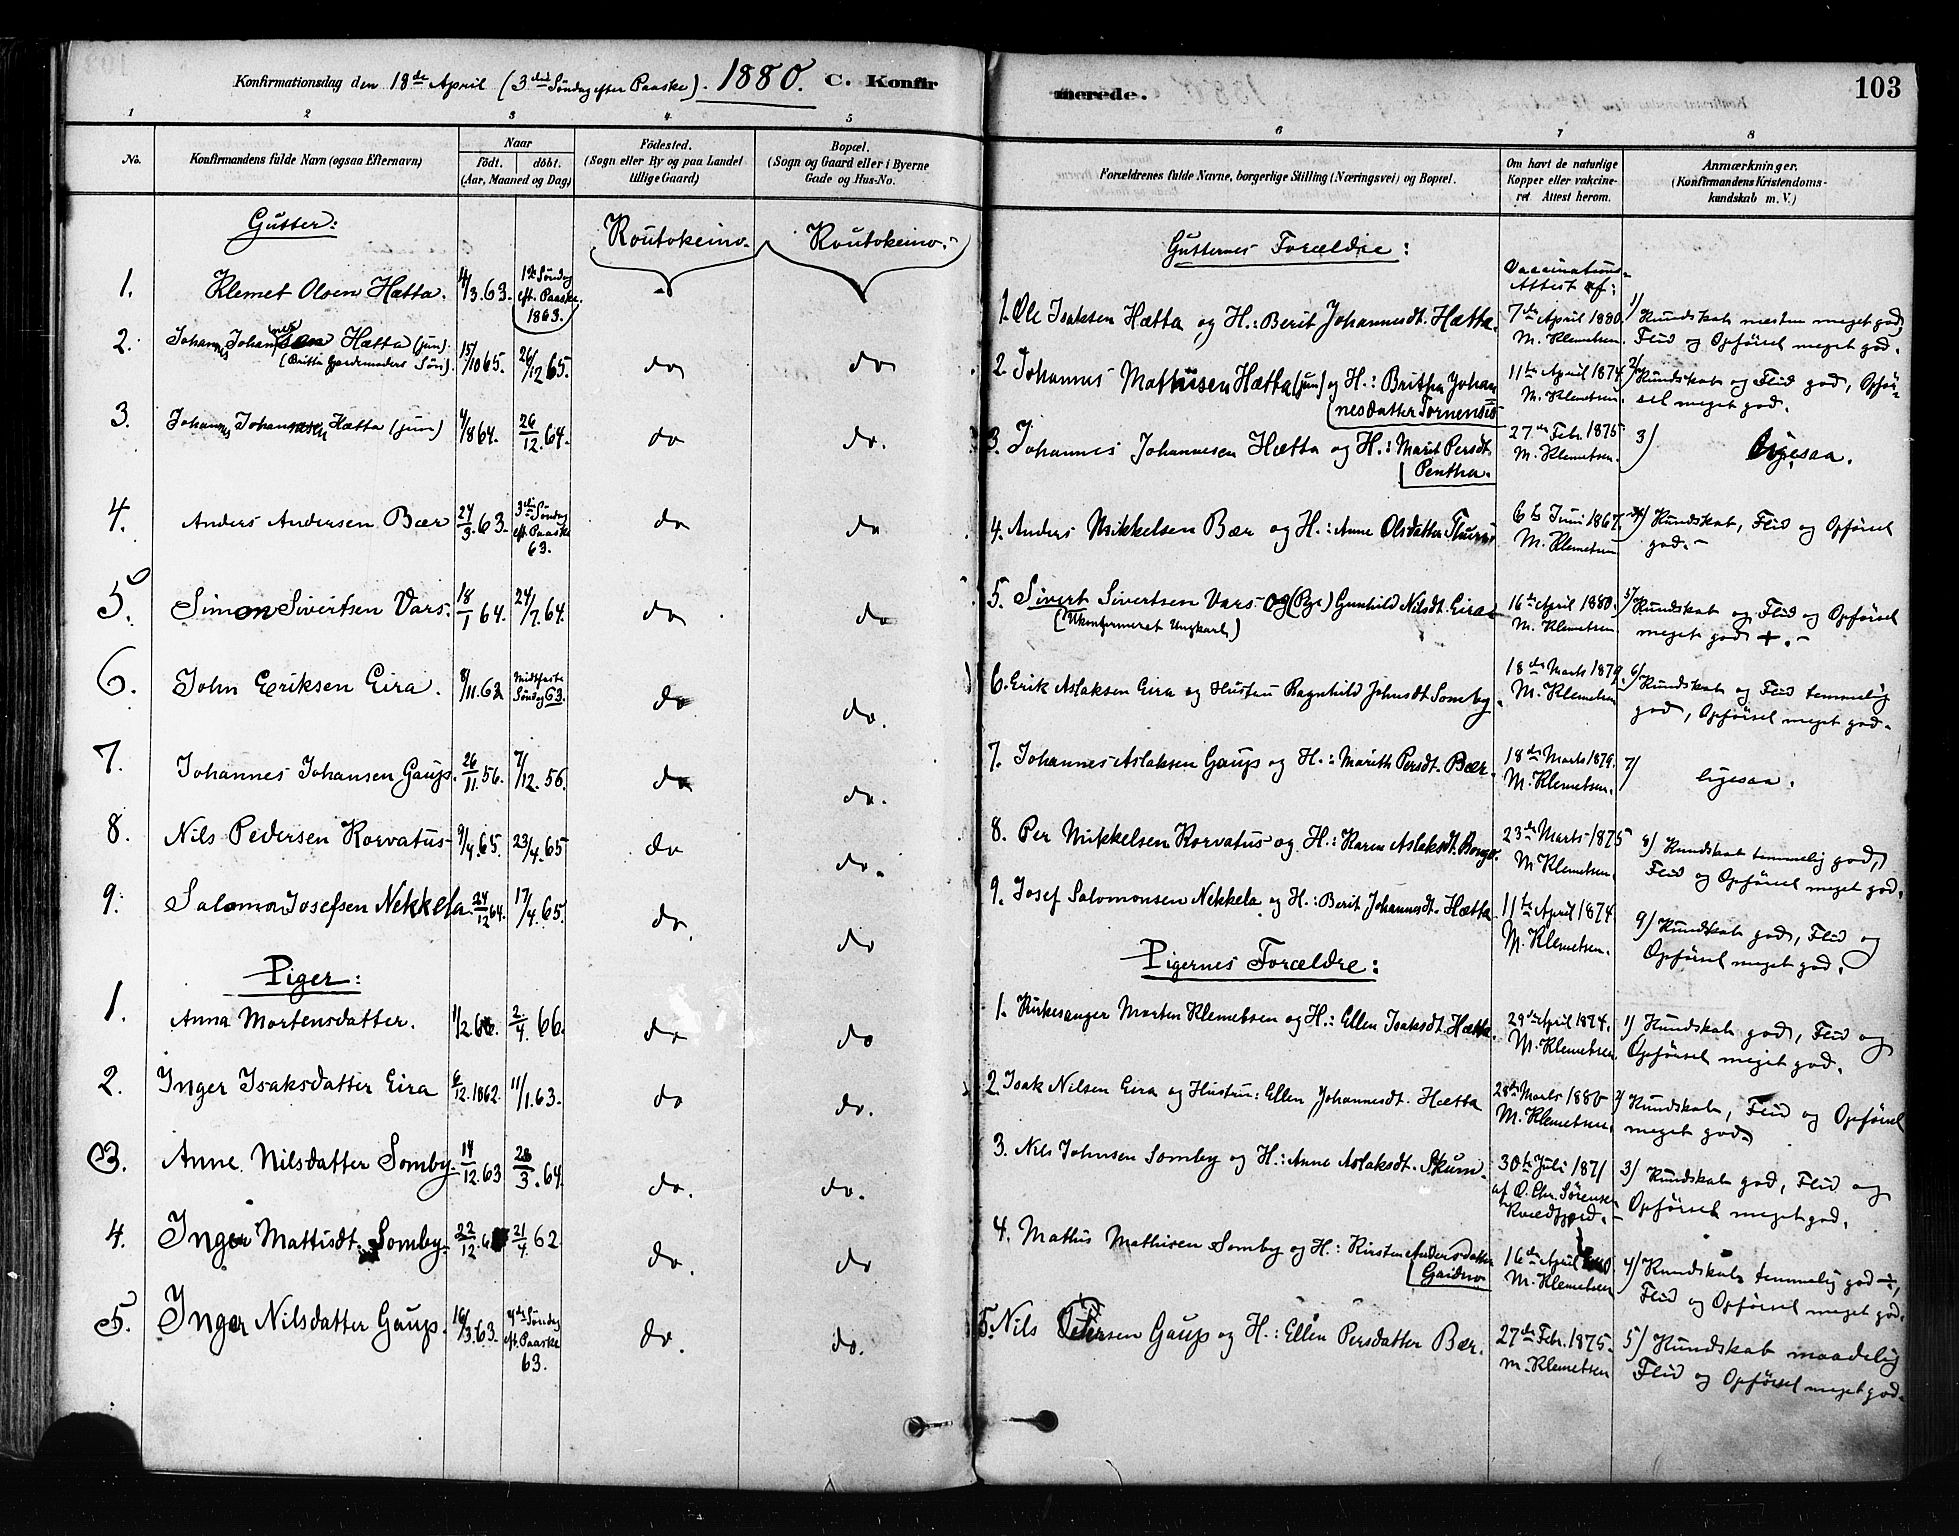 Konfirmationsdag den 18de April (3die Søndag efter Paaske). 1880. C. Konfir
1 2 3 4 5
No. Konfirmandens fulde Navn (ogsaa Efternavn) Naar Födt. döbt. (Aar, Maaned og Dag) Födested. (Sogn eller By og paa Landet tillige Gaard) Bopæl. (Sogn og Gaard eller i Byerne Gade og Hus-No.
Gutter:
Koutokeino. Koutokeino.
1. Klemet Olsen Hætta. 4/3.63. 1ste Søndag eft. Paaske. 1863.
2. Johannes Johannessen Hætta (jun). (Britta Gjordemoders Søn). 15/10 65. 26/12 65. do do
3. Johannes Johannesen Hætta (jun) 4/8 64. 26/12. 64. do do.
4. Anders Andersen Bær 27/3. 63. 3die Søndag eft. Paaske 63. do do
5. Simon Sivertsen Vars. 18/1 64. 24/7. 64. do do
6. John Eriksen Eira. 8/11. 62 Midtfaste Søndag 63. do do.
7. Johannes Johansen Gaup. 26/11. 56. 7/12. 56. do do.
8. Nils Pedersen Korvatus 9/4. 65. 23/4. 65 do do.
9. Salomon Josefsen Nekkela. 24/12 64. 17/4. 65. do. do
Piger:
1. Anna Mortensdatter. 1/2. 66. 2/4. 66. do do
2. Inger Isaksdatter Eira 6/12. 1862. 11/1. 63. do do.
3. Anne Nilsdatter Somby. 14/12. 63 28/3. 64. do. do.
4. Inger Mattisdt. Somby. 22/12. 21/4 62 do. do
5. Inger Nilsdatter Gaup. 16/3. 63. 4de Søndag eft. Paaske 63. do. do.
merede. 103
6 7 8
Forældrenes fulde Navne, borgerlige Stilling (Næringsvei) og Bopæl. Om havt de naturlige Kopper eller vakcineret Attest herom. Anmærkninger. (Konfirmandens Kristendomskundskab m. V.)
Gutternes Forældre:
Vaccinations-Attest af:
1. Ole Isaksen Hætta og H.: Berit Johannesdt. Hætta. 7de April 1880. M. Klemetsen. 1) Kundskab næsten meget god, Flid og Opførsel meget god.
2. Johannes Mathisen Hætta (jun) og H.: Britha Johannesdatter Tornensis 11te April 1874. M. Klemetsen. 2) Kundskab og Flid god, Opførsel meget god.
3. Johannes Johannesen Hætta og H.: Marit Persdt. Pentha. 27de Febr. 1875 M. Klemetsen. 3) Ligesaa.
4. Anders Mikkelsen Bær og H.: Anne Olsdatter 6te Juni 1867. M. Klemetsen 4) Kundskab, Flid og Opførsel god.
5. Sivert Sivertsen Vars og (Pige) Gunhild Nilsdt. Eira (Ukonfirmeret Ungkarl) 16te April 1880. M. Klemetsen. 5) Kundskab og Flid og Opførsel meget god +.
6. Erik Aslaksen Eira og Hustru Ragnhild Johnsdt. Somby. 18de Marts 1879. M. Klemetsen 6) Kundskab og Flid temmelig god, Opførsel meget god.
7. Johannes Aslaksen Gaup og H.: Marith Persdt. Bær. 18de Marts 1879. M. Klemetsen. 7) ligesaa.
8. Per Mikkelsen Korvatus og H.: Karen Aslaksdt. Bongo. 23de Marts 1875 M. Klemetsen. 8) Kundskab temmelig god, Flid og Opførsel meget god.
9. Josef Salomonsen Nekkela og H.: Berit Johannesdt. Hætta 11te April 1874. M. Klemetsen. 9) Kundskab god, Flid og Opførsel meget god.
Pigernes Forældre:
1. Kirkesanger Morten Klemetsen og H.: Ellen Isaksdt. Hætta. 29de April 1874. M. Klemetsen. 1) Kundskab god, Flid og Opførsel meget god.
2. Isak Nilsen Eira og Hustru: Ellen Johannesdt. Hætta 28de Marts 1880 M. Klemetsen. 2) Kundskab, Flid og Opførsel meget god
3. Nils Johnsen Somby og H.: Anne Aslaksdt. Skum. 30te Juli 1871 af O. Chr. Sørensen Kvalfjord. 3) Kundskab god, Flid og Opførsel meget god.
4. Mathis Mathisen Somby og H.: Kirsten Andersdatter Gaidno 16de April M. Klemetsen 4) Kundskab temmelig god ÷, Flid og Opførsel meget god.
5. Nils Petersen Gaup og H.: Ellen Persdatter Bær. 27de Febr. 1875. M. Klemetsen 5) Kundskab maadelig Flid og Opførsel meget god.